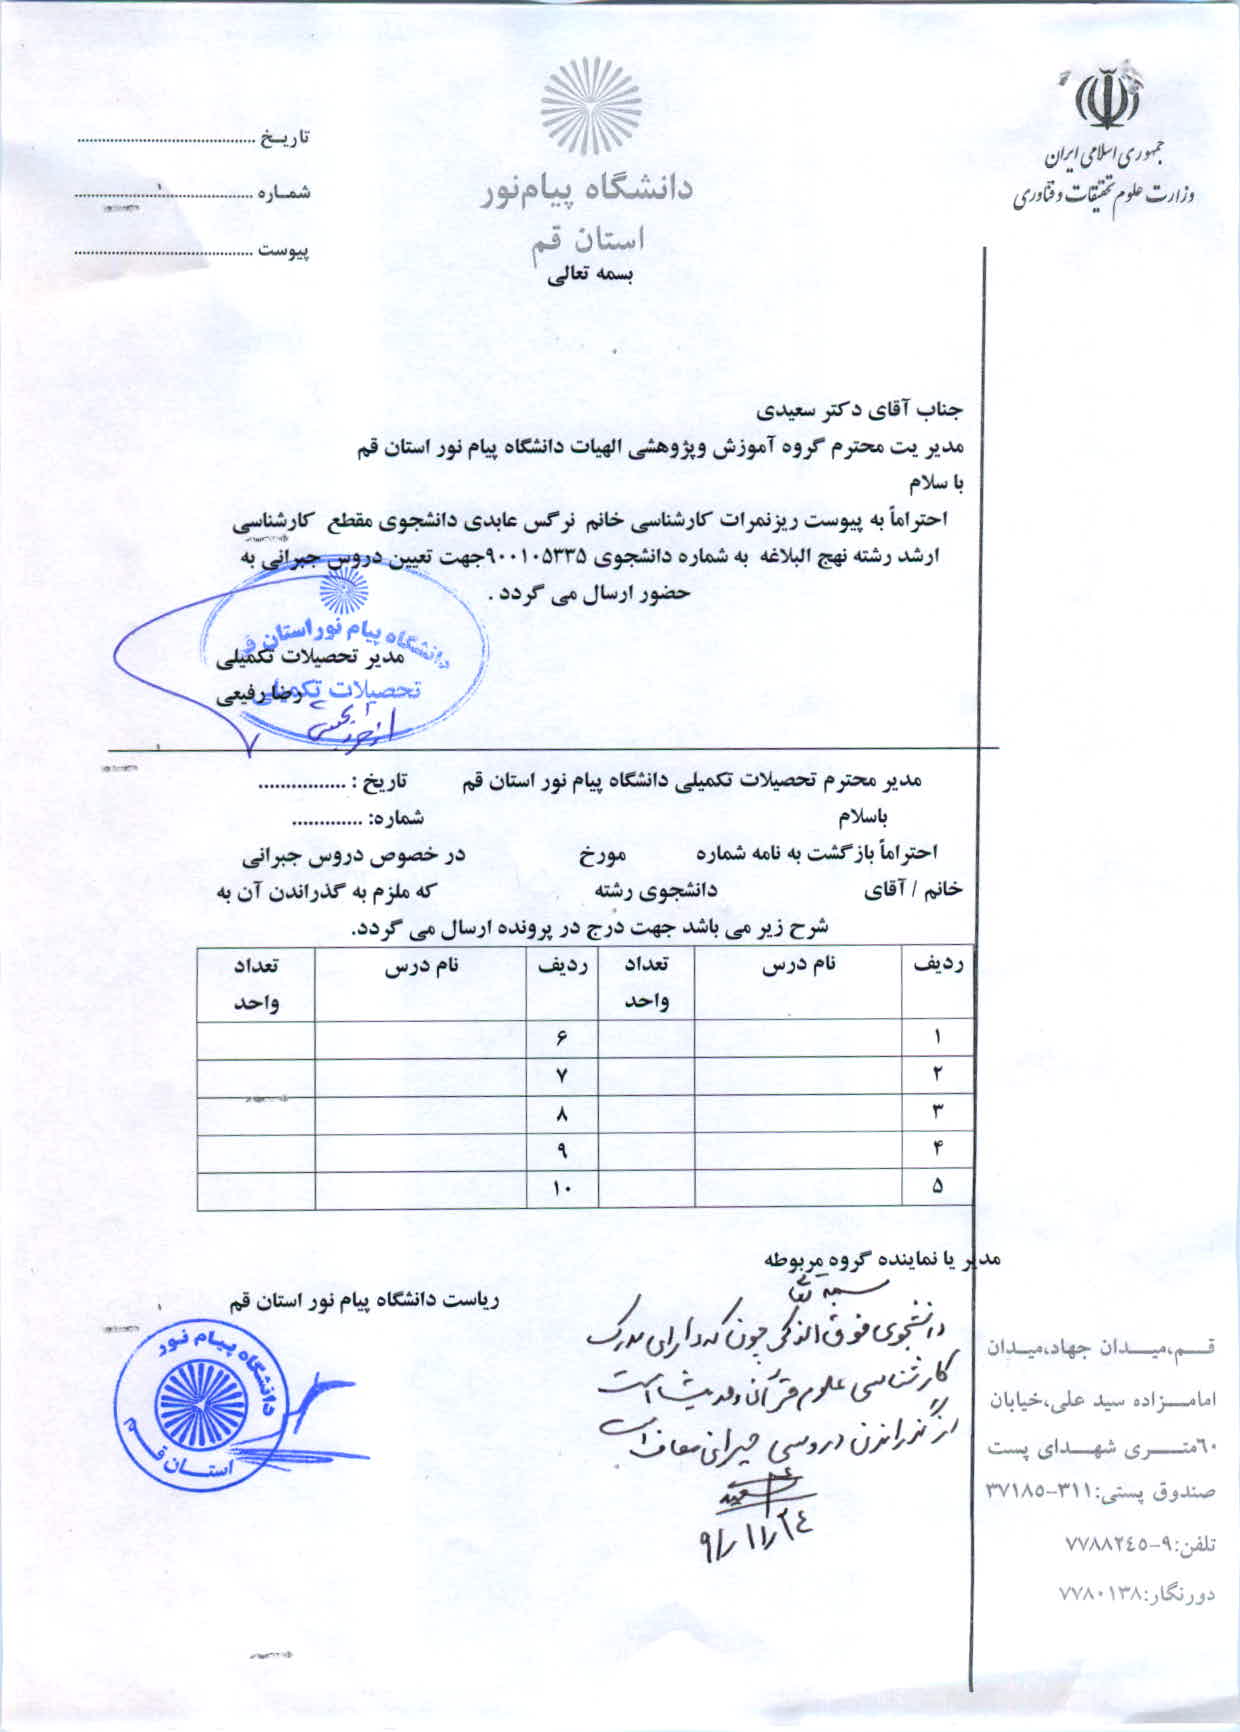 جمهوری اسلامی ایران
وزارت علوم تحقیقات و فناوری
دانشگاه پیام‌نور
استان قم
بسمه تعالی
تاریـخ ............................................
شمـاره ............................................
پیوست ............................................
جناب آقای دکتر سعیدی
مدیر یت محترم گروه آموزش وپژوهشی الهیات دانشگاه پیام نور استان قم
با سلام
احتراماً به پیوست ریزنمرات کارشناسی خانم نرگس عابدی دانشجوی مقطع کارشناسی
ارشد رشته نهج البلاغه به شماره دانشجوی ۹۰۰۱۰۵۳۳۵جهت تعیین دروس جبرانی به
حضور ارسال می گردد .
دانشگاه پیام نور استان قم
مدیر تحصیلات تکمیلی
تحصیلات تکمیلی
رضا رفیعی
مدیر محترم تحصیلات تکمیلی دانشگاه پیام نور استان قم تاریخ : ................
باسلام شماره: .............
احتراماً بازگشت به نامه شماره مورخ در خصوص دروس جبرانی
خانم / آقای دانشجوی رشته که ملزم به گذراندن آن به
شرح زیر می باشد جهت درج در پرونده ارسال می گردد.
ردیف نام درس تعداد واحد ردیف نام درس تعداد واحد
۱ ۶
۲ ۷
۳ ۸
۴ ۹
۵ ۱۰
مدیر یا نماینده گروه مربوطه
بسمه تعالی
دانشجوی فوق الذکر چون که دارای مدرک
کارشناسی علوم قرآن و حدیث است
از گذراندن دروس جبرانی معاف است
سعیدی
۹۱/۱۱/۲٤
ریاست دانشگاه پیام نور استان قم
دانشگاه پیام نور
استـان قـم
قـم،میـدان جهاد،میـدان
امامـزاده سید علی،خیابان
٦٠متـری شهـدای پست
صندوق پستی:۳۱۱-۳۷۱۸۵
تلفن:۹-۷۷۸۸۲٤٥
دورنگار:۷۷۸۰۱۳۸